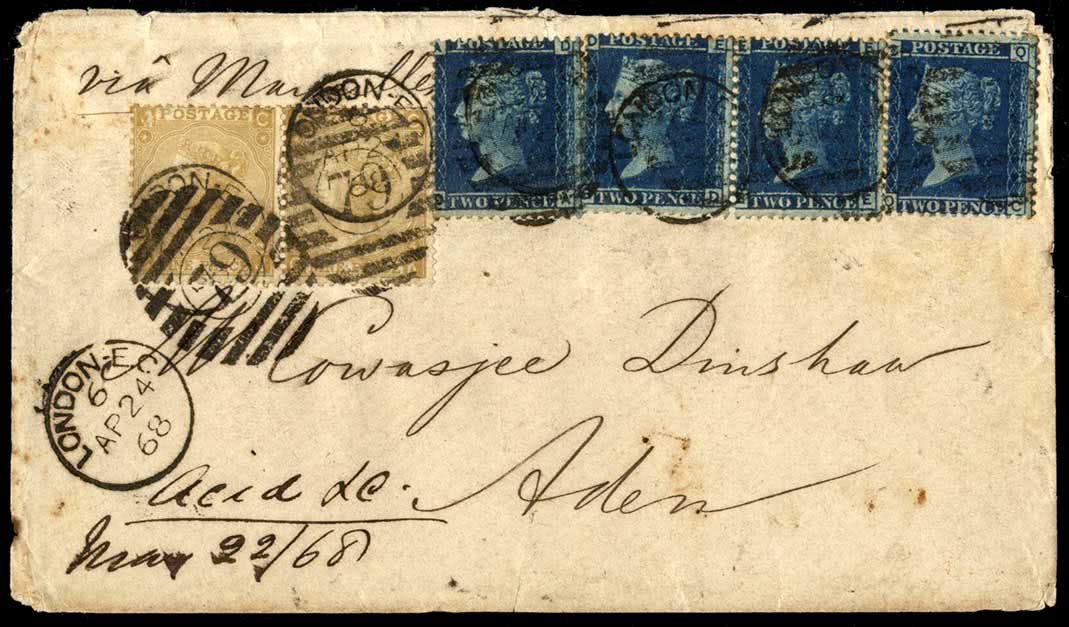 viâ
POSTAGE
POSTAGE
POSTAGE
POSTAGE
POSTAGE
TWO PENCE
TWO PENCE
TWO PENCE
TWO PENCE
LONDON·EC
79
79
Cowasjee Dinshaw
Aden
LONDON-EC
6C
AP 24
68
acid &c.
May 22/68